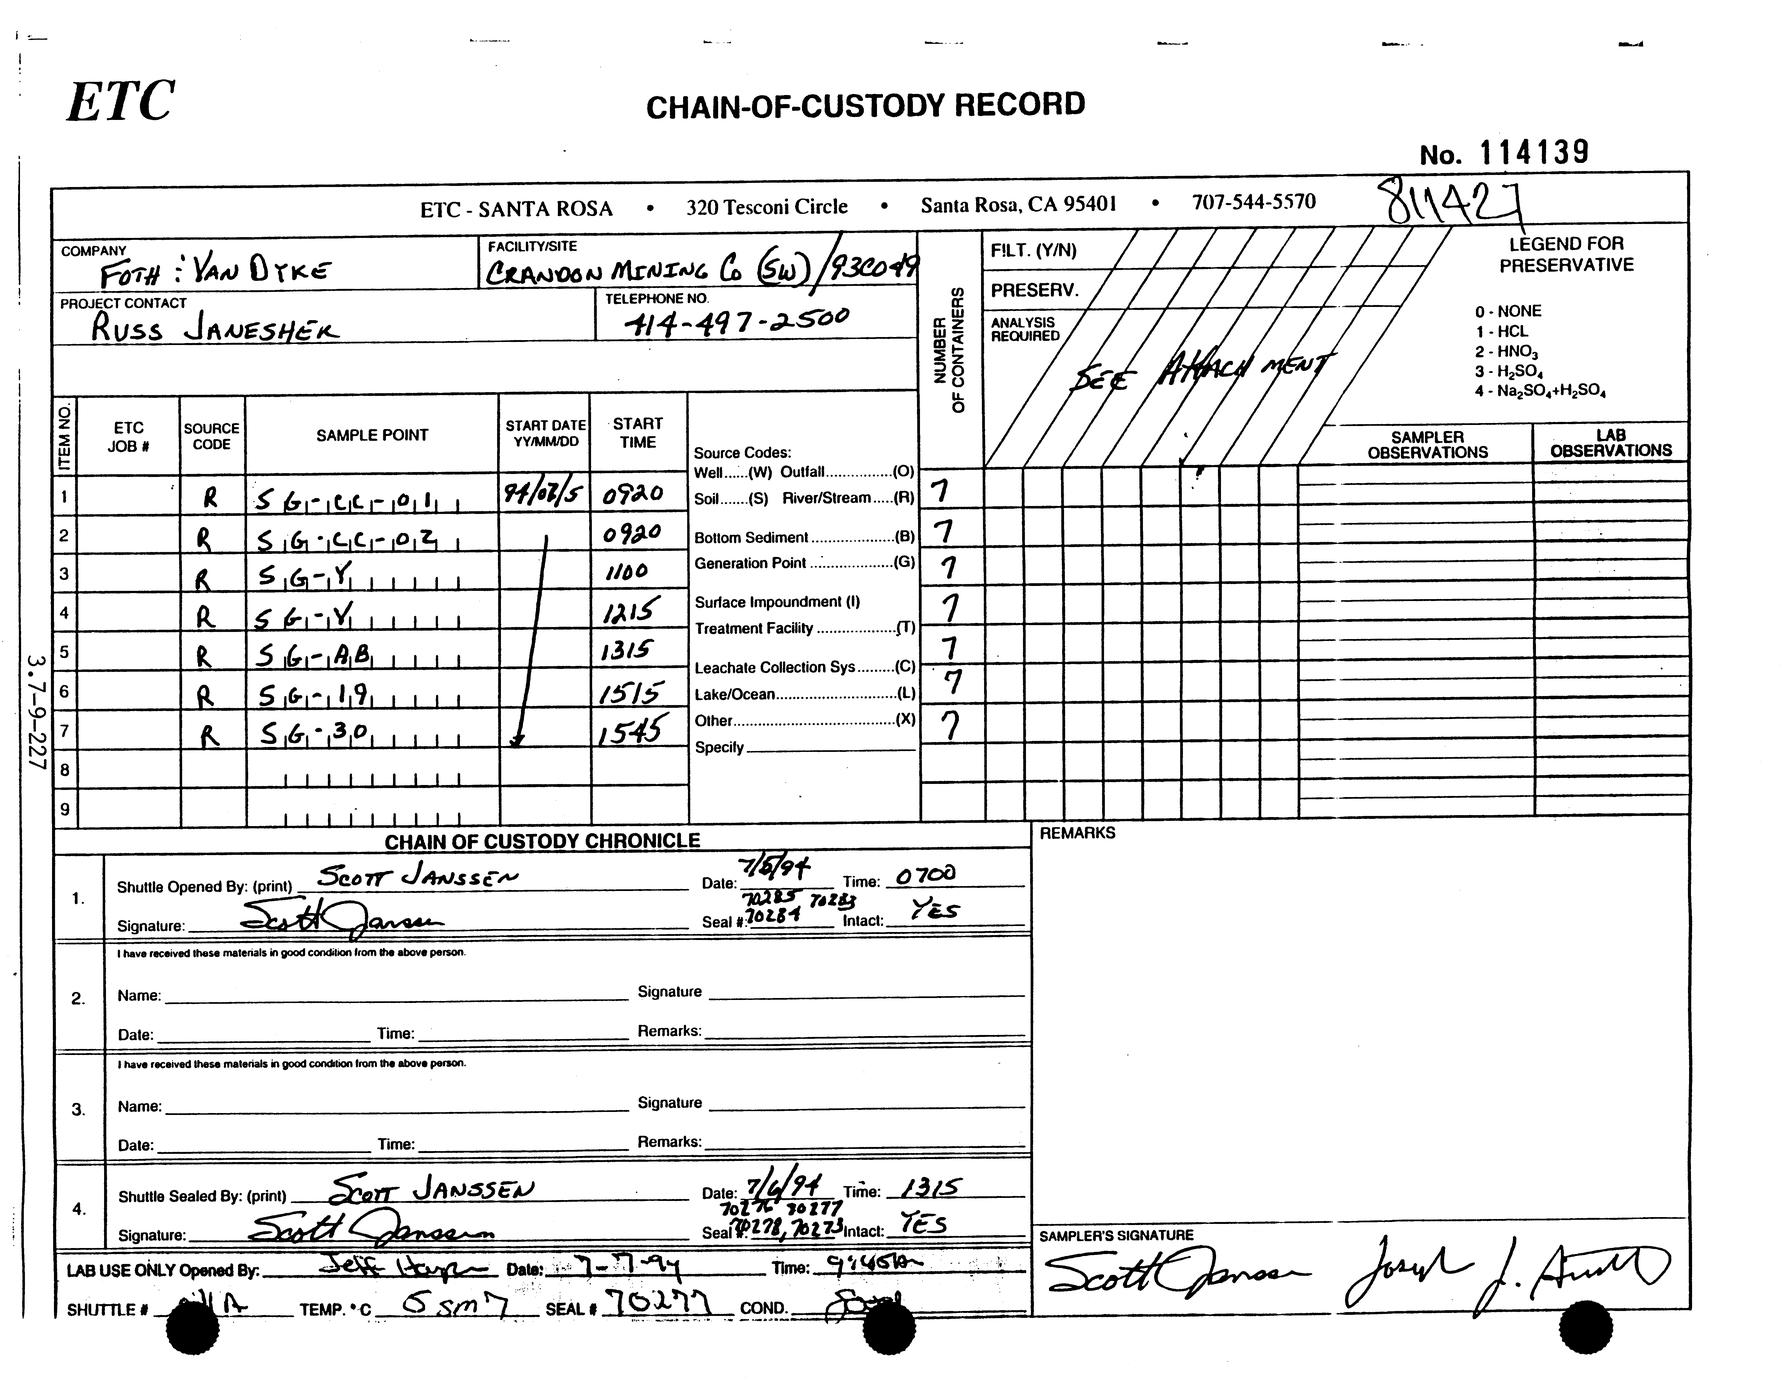 ETC
CHAIN-OF-CUSTODY RECORD
No. 114139
ETC - SANTA ROSA • 320 Tesconi Circle • Santa Rosa, CA 95401 • 707-544-5570
811427
COMPANY FOTH : VAN DYKE
FACILITY/SITE CRANDON MINING CO (SW) /93C049
PROJECT CONTACT RUSS JANESHEK
TELEPHONE NO. 414-497-2500
NUMBER OF CONTAINERS
FILT. (Y/N)
PRESERV.
ANALYSIS REQUIRED
SEE ATTACHMENT
LEGEND FOR PRESERVATIVE
0 - NONE
1 - HCL
2 - HNO3
3 - H2SO4
4 - Na2SO4+H2SO4
ITEM NO. ETC JOB # SOURCE CODE SAMPLE POINT START DATE YY/MM/DD START TIME
SAMPLER OBSERVATIONS LAB OBSERVATIONS
1 R SG-CC-01 94/07/5 0920 7
2 R SG-CC-02 0920 7
3 R SG-Y 1100 7
4 R SG-Y 1215 7
5 R SG-AB 1315 7
6 R SG-19 1515 7
7 R SG-30 1545 7
8
9
Source Codes:
Well......(W) Outfall...............(O)
Soil.......(S) River/Stream.....(R)
Bottom Sediment...................(B)
Generation Point...................(G)
Surface Impoundment (I)
Treatment Facility...................(T)
Leachate Collection Sys.........(C)
Lake/Ocean...........................(L)
Other.....................................(X)
Specify
CHAIN OF CUSTODY CHRONICLE
REMARKS
1. Shuttle Opened By: (print) SCOTT JANSSEN Date: 7/5/94 Time: 0700
70285 70283
Signature: Scott Janssen Seal #: 70284 Intact: YES
I have received these materials in good condition from the above person.
2. Name: Signature
Date: Time: Remarks:
I have received these materials in good condition from the above person.
3. Name: Signature
Date: Time: Remarks:
4. Shuttle Sealed By: (print) SCOTT JANSSEN Date: 7/6/94 Time: 1315
70276 70277
Signature: Scott Janssen Seal #: 70278, 70273 Intact: YES
LAB USE ONLY Opened By: Jeff Date: 7-7-94 Time: 9:45
SHUTTLE # TEMP. °C SEAL # 70277 COND. Good
SAMPLER'S SIGNATURE
Scott Janssen Joseph J.
3.7-9-227